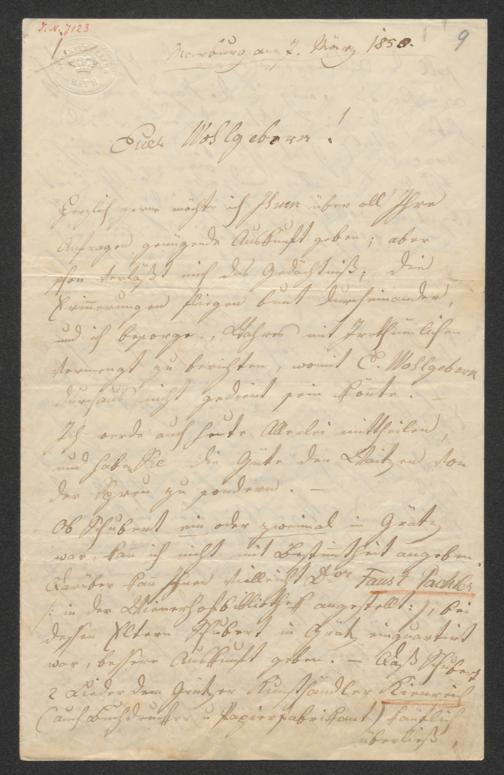 I.N. 7123
9
Marburg am 7. März 1858.
Euer Wohlgeboren!
Herzlich gerne möchte ich Ihnen über all' Ihre
Anfragen genügende Auskunft geben; aber
schon verläßt mich das Gedächtniß; die
Erinnerungen fliegen bunt durcheinander,
und ich besorge, Wahres mit Irrthümlichen
vermengt zu berichten, womit E. Wohlgeboren
durchaus nicht gedient sein könte. –
Ich werde auch heute Allerlei mittheilen,
und habe Sie die Güte den Waitzen von
der Spreu zu sondern. –
Ob Schubert ein oder zweimal in Grätz
war, kan ich nicht mit Bestimtheit angeben.
Darüber kan Ihnen vielleicht Dor Faust Pachler
/: in der Wienerhofbibliothek angestellt :/, bei
dessen Eltern Schubert in Grätz einquartirt
war, bessere Auskunft geben. – Daß Schubert
2 Lieder dem Grätzer Kunsthändler Kienreich
(auch Buchdrucker u Papierfabrikant) käuflich
überließ,